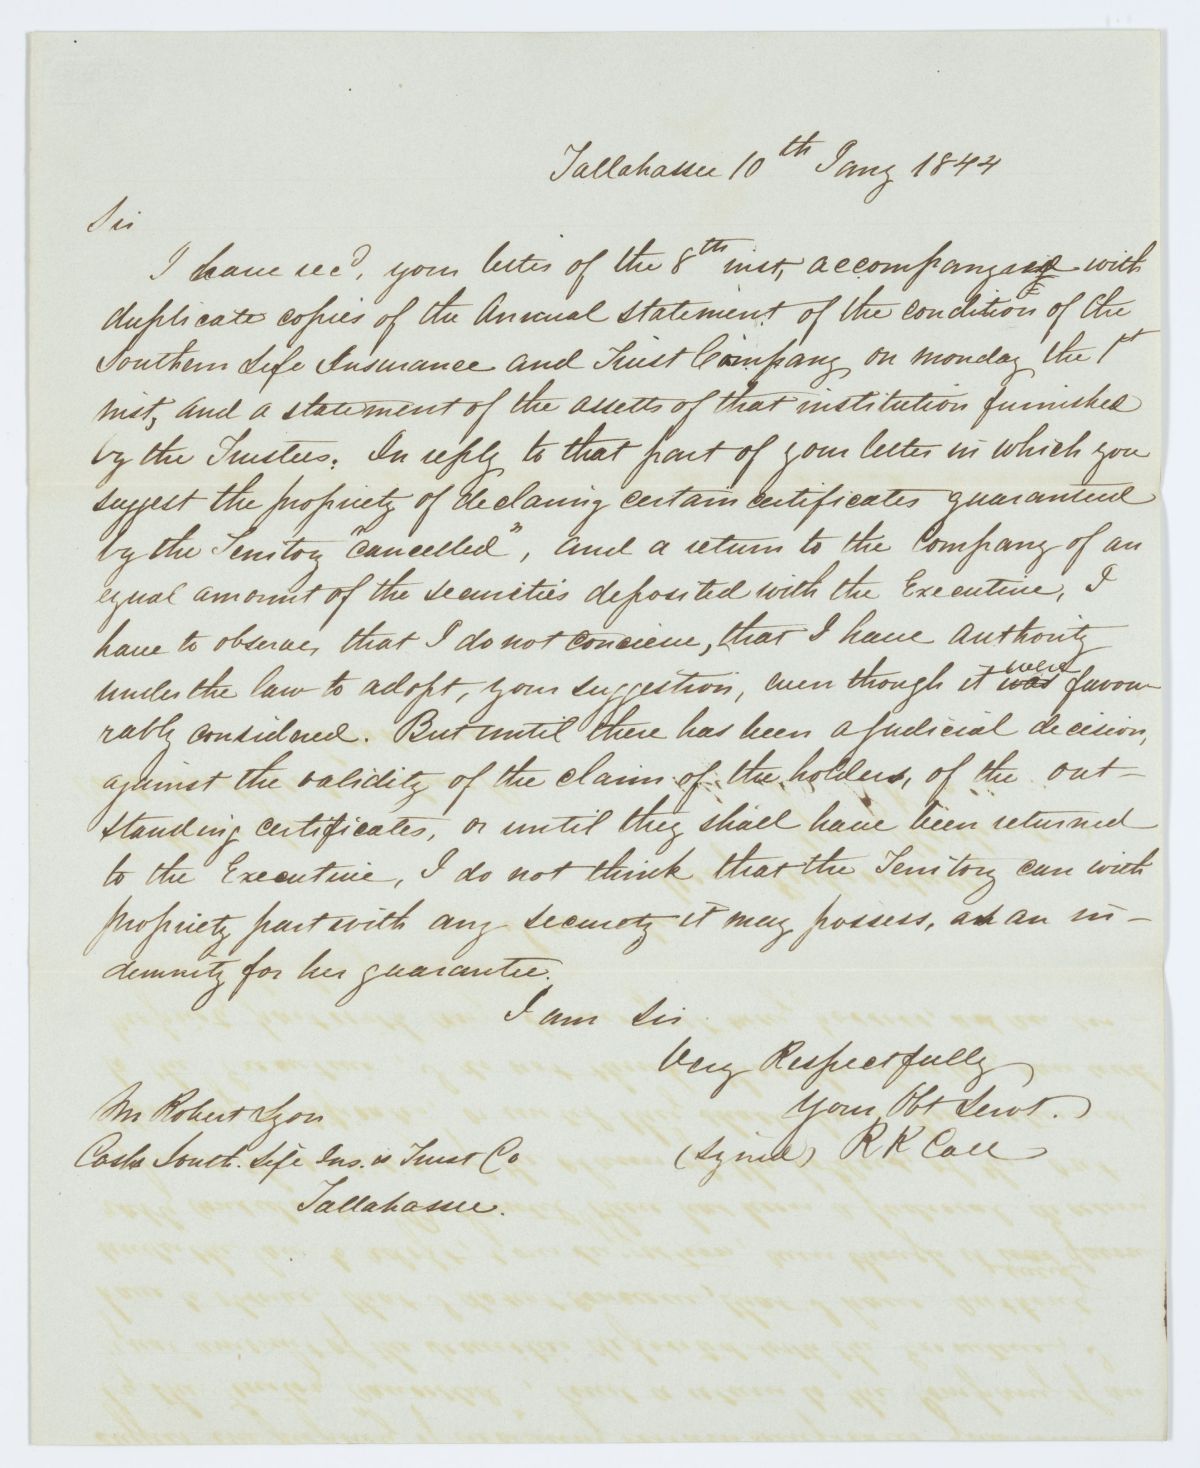 Tallahassee 10th Jany 1844
Sir
I have recd. your letter of the 8th inst, accompanied with
duplicate copies of the Annual statement of the condition of the
Southern Life Insurance and Trust Company on monday the 1st
inst, and a statement of the assetts of that institution furnished
by the Trustees. In reply to that part of your letter in which you
suggest the propriety of declaring certain certificates guaranteed
by the Territory "cancelled", and a return to the Company of an
equal amount of the securities deposited with the Executive, I
have to observe, that I do not conceive, that I have Authority
under the law to adopt, your suggestion, even though it were favou-
rably considered. But until there has been a judicial decision,
against the validity of the claim of the holders, of the out-
standing certificates, or until they shall have been returned
to the Executive, I do not think that the Territory can with
propriety part with any security it may possess, as an in-
demnity for her guarantee.
I am Sir
Very Respectfully
Your Obt Servt.
(signed) R K Call
Mr Robert Lyon
Cashr South. Life Ins. & Trust Co
Tallahassee.